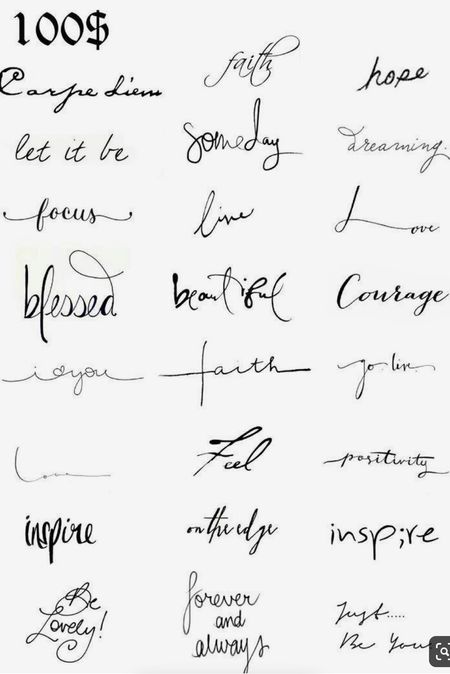 100$
Carpe diem
faith
hope
let it be
someday
dreaming.
focus
live
Love
blessed
beautiful
Courage
i you
faith
go live
Love
Feel
positivity
inspire
on the edge
insp;re
Be
Lovely!
forever
and
always
Just.....
Be You